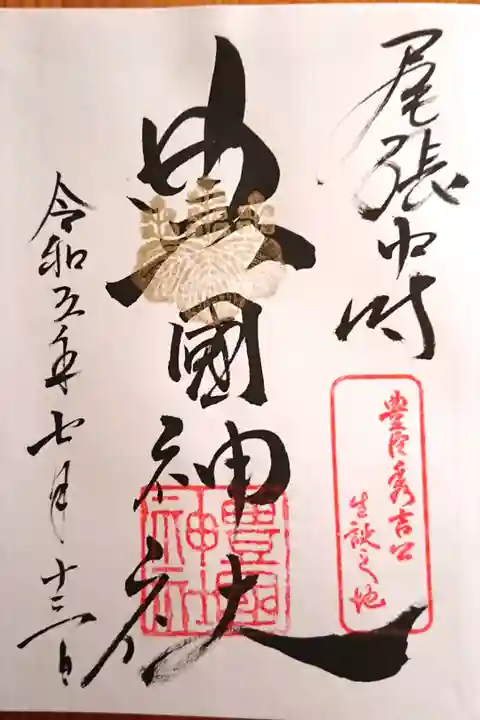 尾張中村
豊臣秀吉公
生誕之地
豊國神社
豊國
神社
令和五年七月十三日